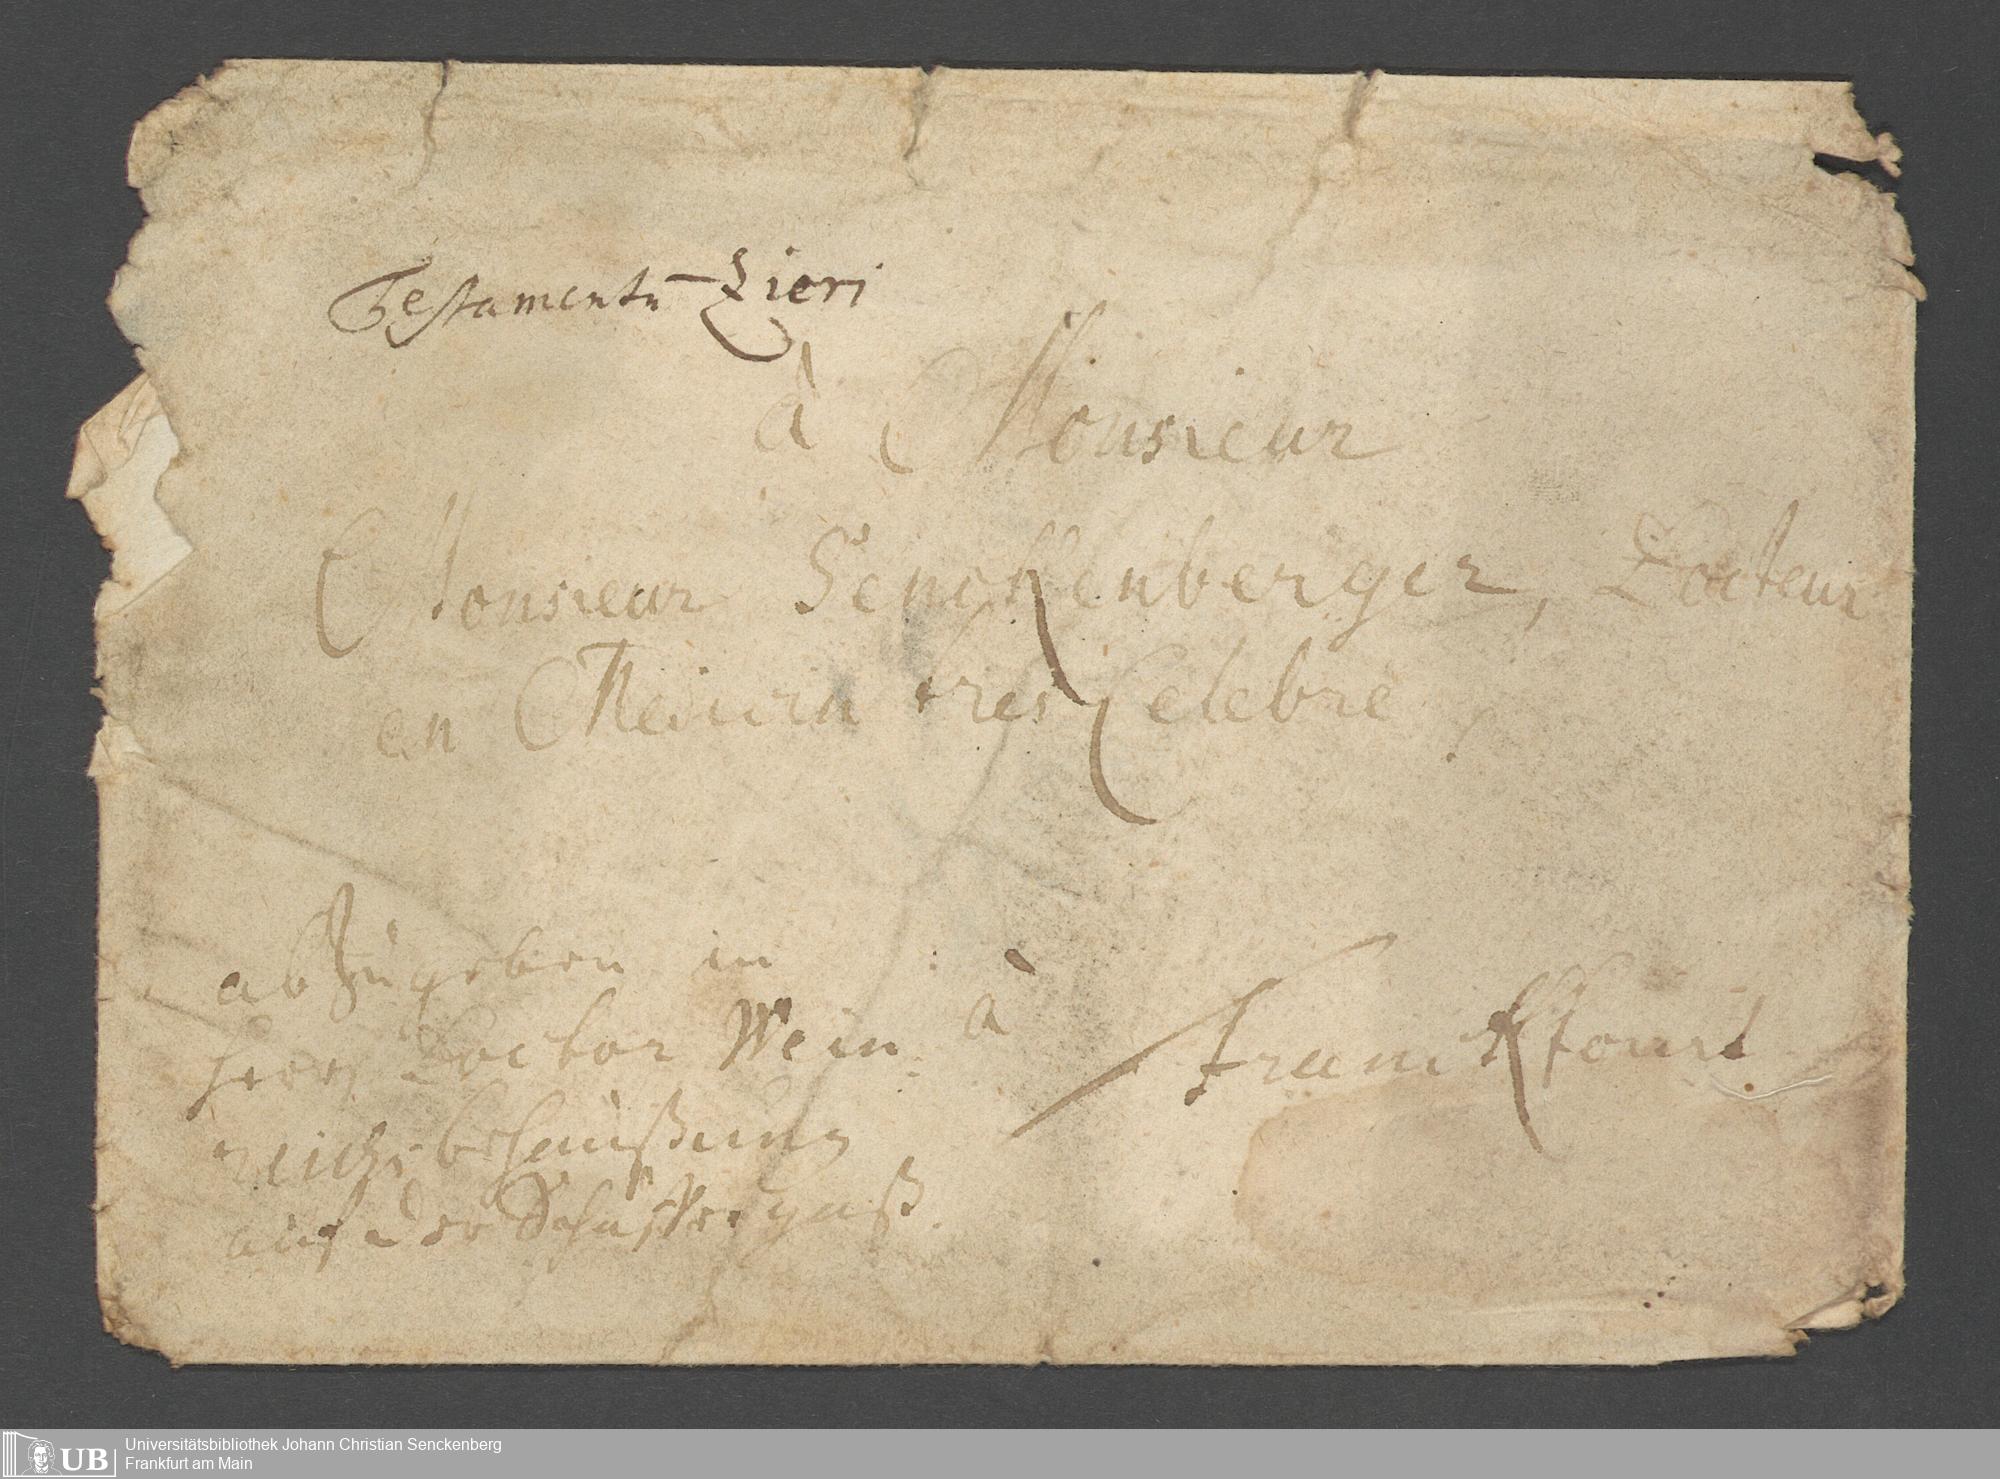 Testamentu̅ Zieri
à Monsieur
Monsieur Senckenberger, Docteur
en Medicin tres Celebre.
abzugeben in
Herrn Doctor Wein
à Franckfourt
reichs behaußung
auf der gaß.
UB Universitätsbibliothek Johann Christian Senckenberg
Frankfurt am Main